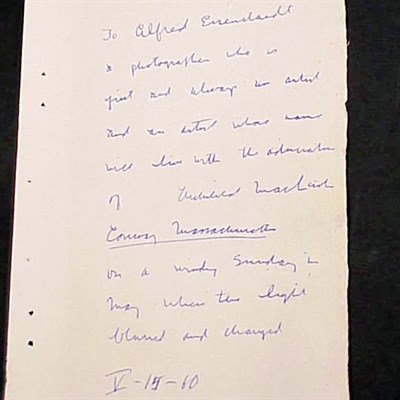 To Alfred Eisenstaedt
a photographer who is
first and always an artist
and an artist whose name
will live with the admiration
of Archibald MacLeish
Conway Massachusetts
on a windy Sunday in
May when the light
blurred and changed
V-15-60